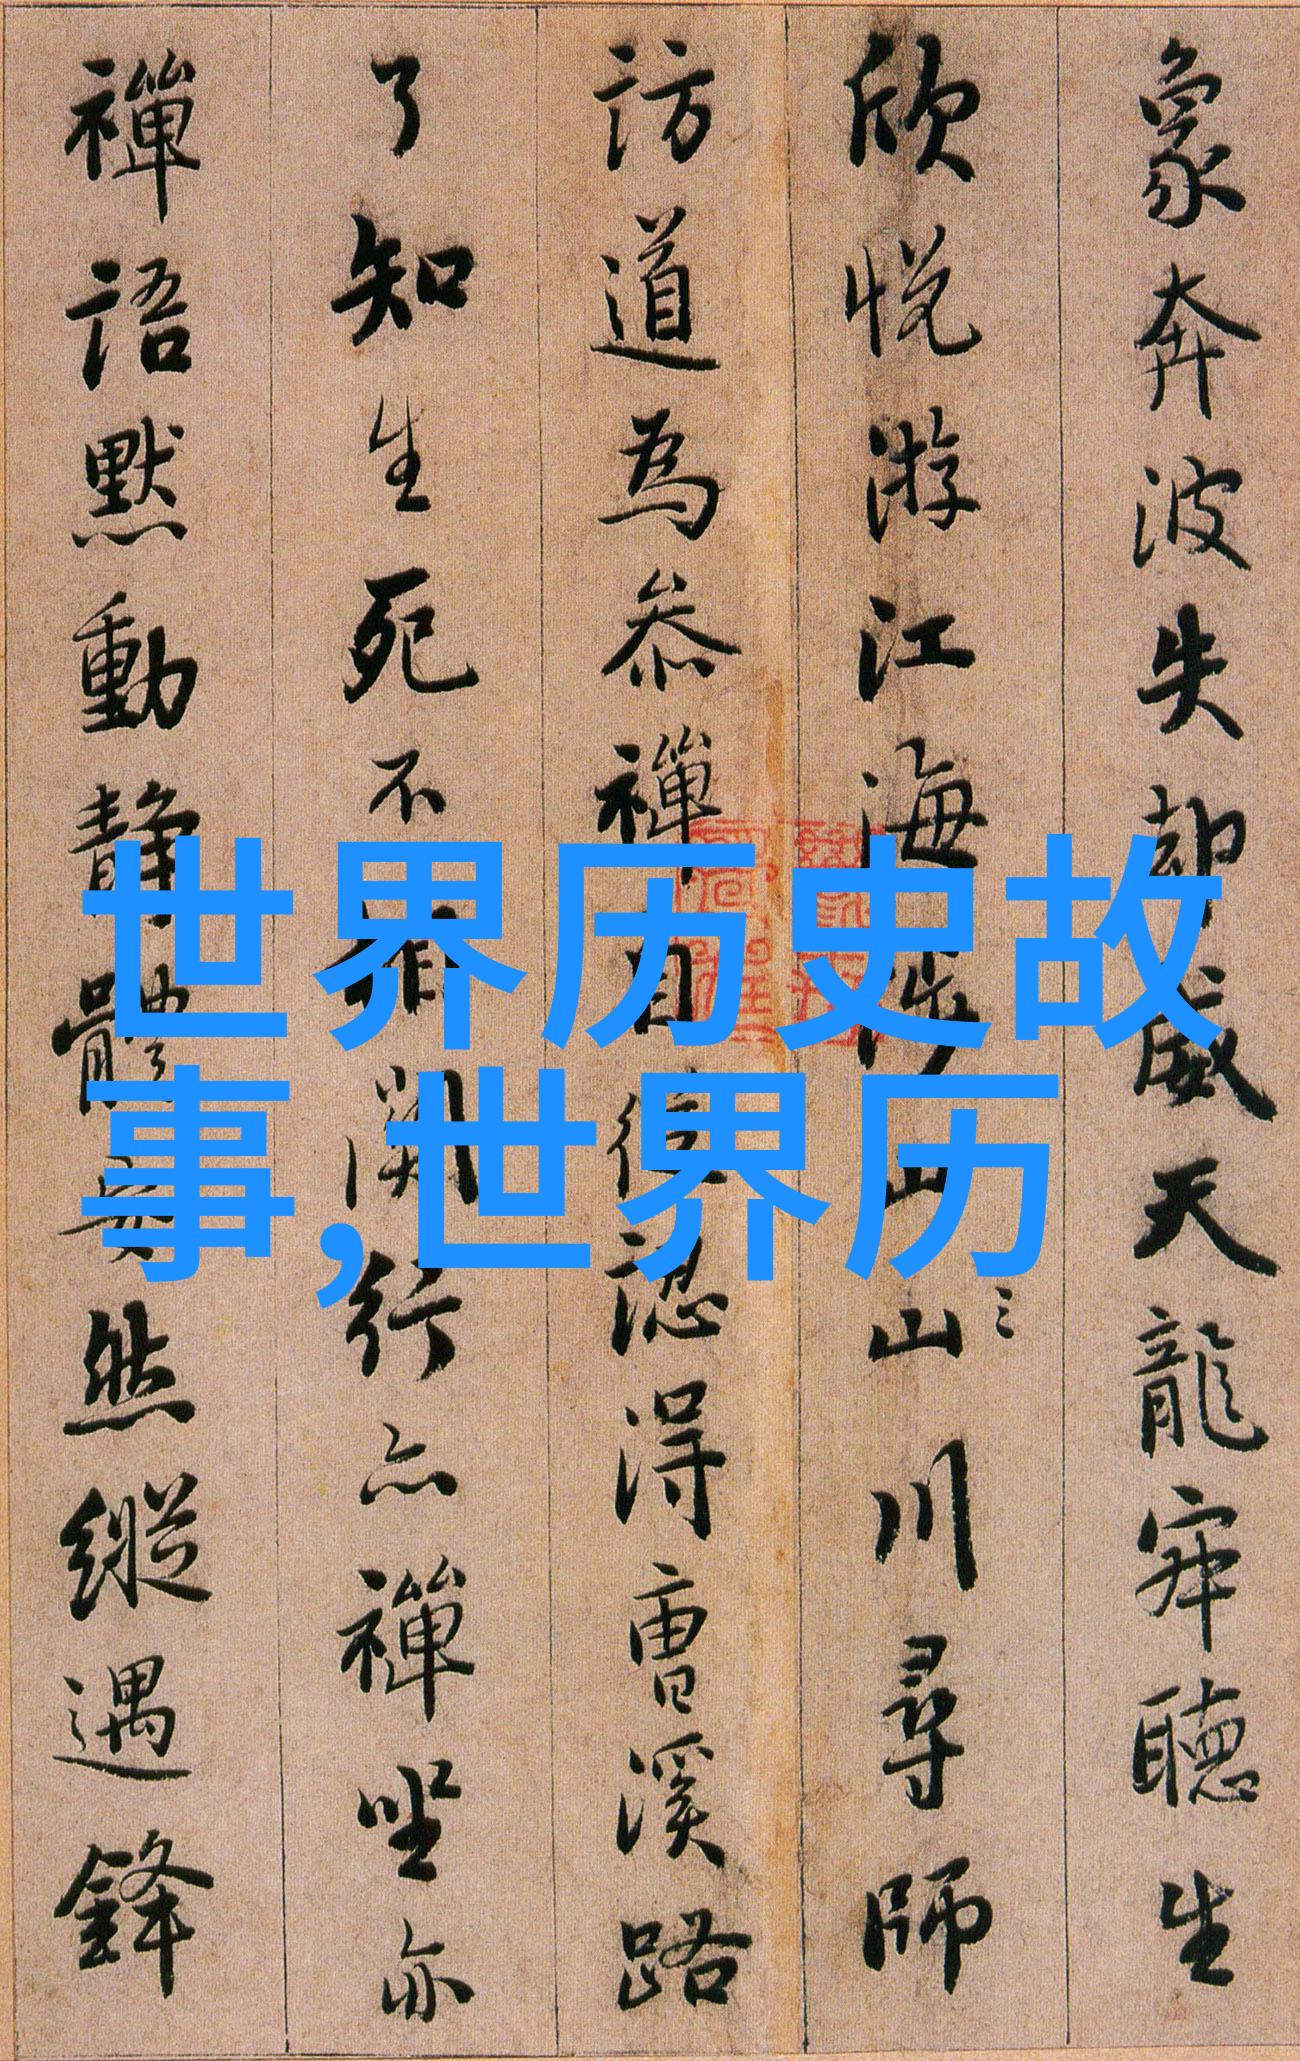 象奔波失却威天龍寂聽生
欣悦游江海涉山川尋師
訪道為叅禪自從認得曹溪路
了知生死不相関行亦禪坐亦
禪語默動静體安然縱遇鋒
世界历史故
事,世界历